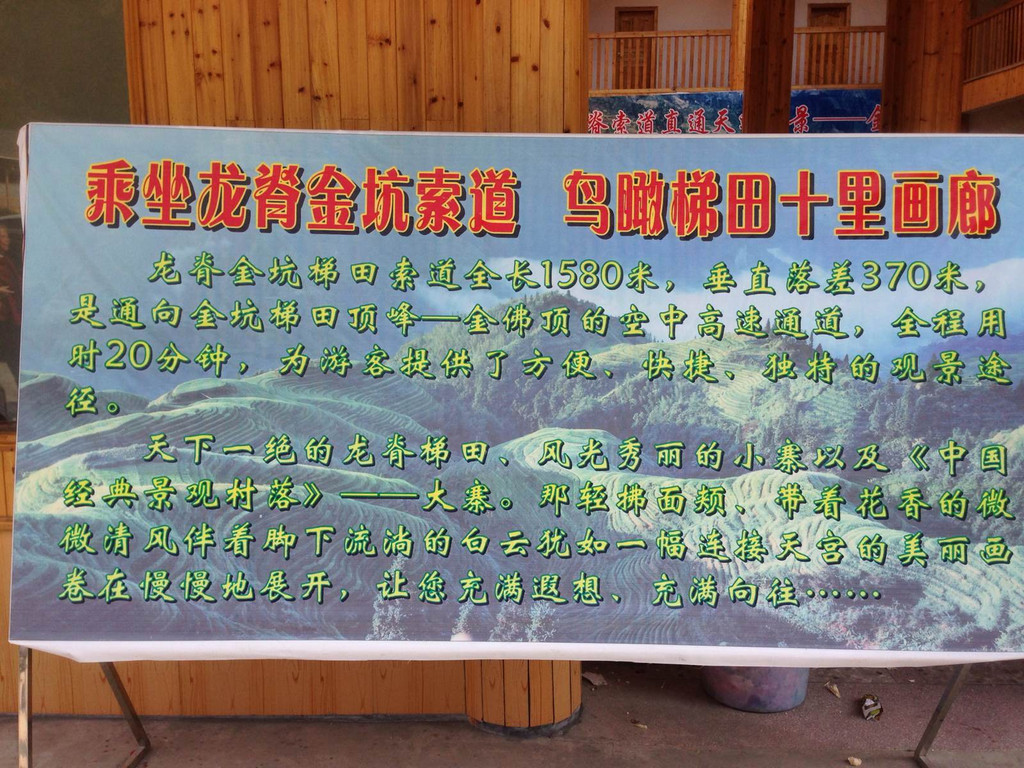 脊索道直通天
景——金
乘坐龙脊金坑索道 鸟瞰梯田十里画廊
龙脊金坑梯田索道全长1580米，垂直落差370米，
是通向金坑梯田顶峰—金佛顶的空中高速通道，全程用
时20分钟，为游客提供了方便、快捷、独特的观景途
径。
天下一绝的龙脊梯田、风光秀丽的小寨以及《中国
经典景观村落》———大寨。那轻拂面颊、带着花香的微
微清风伴着脚下流淌的白云犹如一幅连接天宫的美丽画
卷在慢慢地展开，让您充满遐想、充满向往……